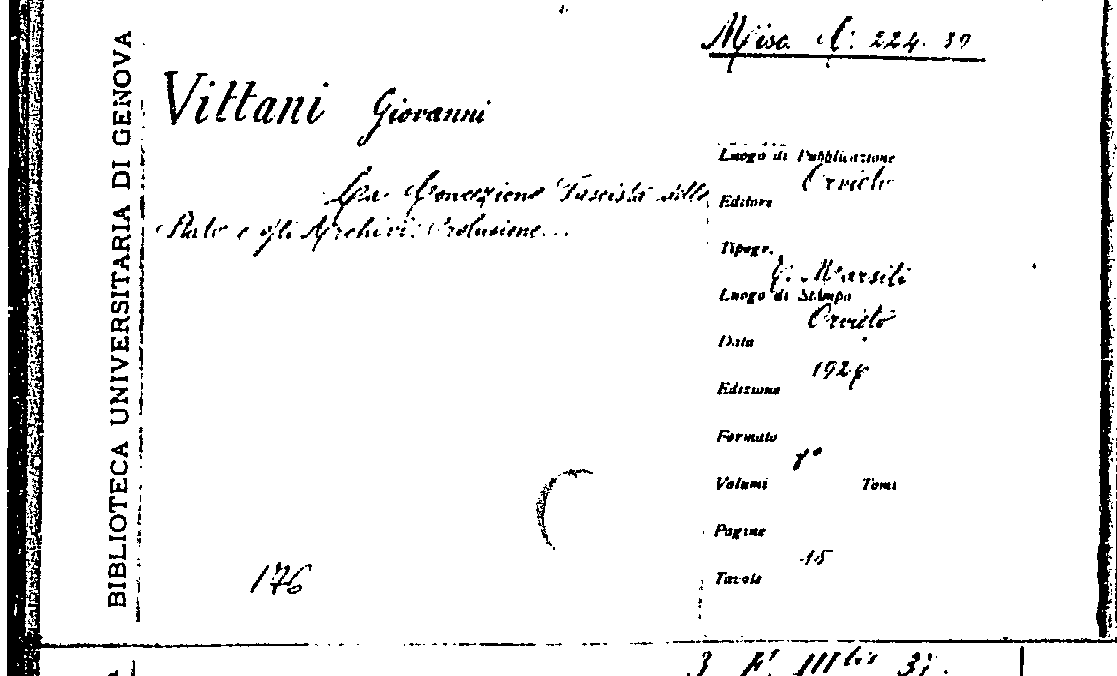 BIBLIOTECA UNIVERSITARIA DI GENOVA
Misc. A. 224. 30
Vittani Giovanni
La Concezione Fascista dello
Stato e gli Archivi: Prolusione...
Luogo di Pubblicazione
Orvieto
Editore
Tipogr.
G. Marsili
Luogo di Stampa
Orvieto
Data
192
Edizione
Formato
8°
Volumi Tomi
Pagine
15
Tavole
176
3